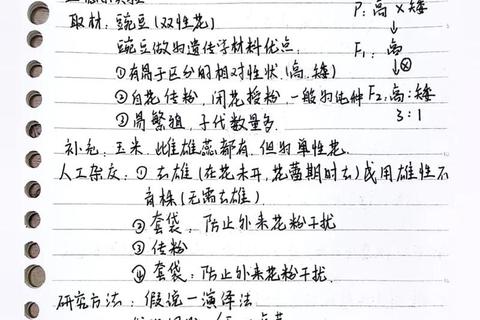 取材: 豌豆(双性花)
P: 高×矮
豌豆做为遗传学材料优点:
F₁: 高
①有易于区分的相对性状(高.矮)
②自花传粉,闭花授粉,一般为纯种
F₂:高:矮
3:1
③易繁殖,子代数量多.
补充: 玉米.雌雄蕊都有.但为单性花.
人工杂交: ①去雄(在花未开,花蕾期时去)或用雄性不
育株(无需去雄)
②套袋: 防止外来花粉干扰
③传粉
④套袋: 防止外来花粉干扰.
研究方法: 假说一演绎法